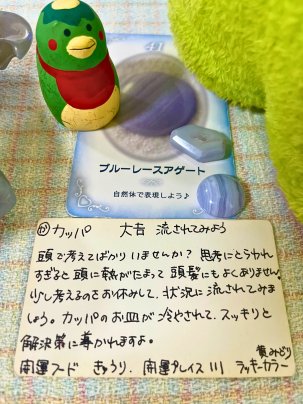 41
ブルーレースアゲート
自然体で表現しよう♪
カッパ 大吉 流されてみよう
頭で考えてばかりいませんか? 思考にとらわれ
すぎると頭に熱がたまって頭髪にもよくありません。
少し考えるのをお休みして、状況に流されてみま
しょう。カッパのお皿が冷やされて、スッキリと
解決策に導かれますよ。
黄みどり
開運フード きゅうり、開運プレイス 川 ラッキーカラー